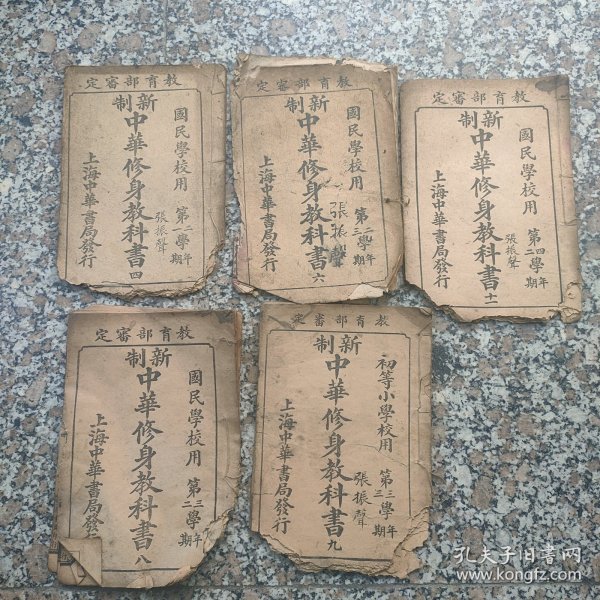 教育部審定
國民學校用 第二一學年期
新制
中華修身教科書四
張振聲
上海中華書局發行
教育部審定
國民學校用 第二三學年期
新制
中華修身教科書六
張振聲
上海中華書局發行
教育部審定
國民學校用 第四二學年期
新制
中華修身教科書十一
張振聲
上海中華書局發行
教育部審定
國民學校用 第三二學年期
新制
中華修身教科書八
上海中華書局發行
教育部審定
初等小學校用 第三三學年期
新制
中華修身教科書九
張振聲
上海中華書局發行
孔夫子旧书网
www.kongfz.com